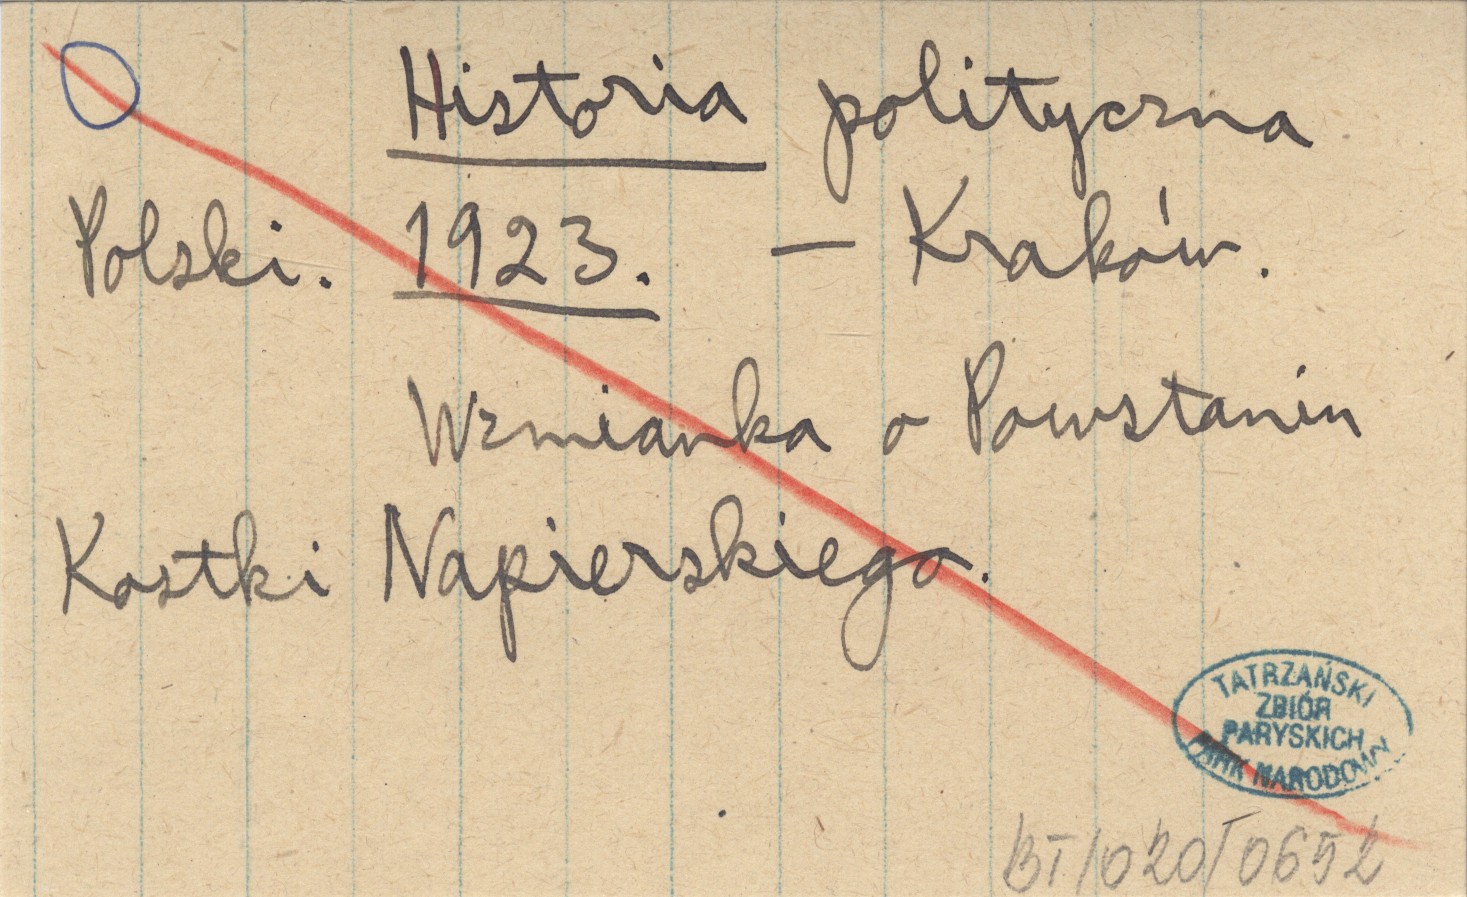 Historia polityczna
Polski. 1923. — Kraków.
Wzmianka o Powstaniu
Kostki Napierskiego.
TATRZAŃSKI
ZBIÓR
PARYSKICH
PARK NARODOWY
BT/020/0652